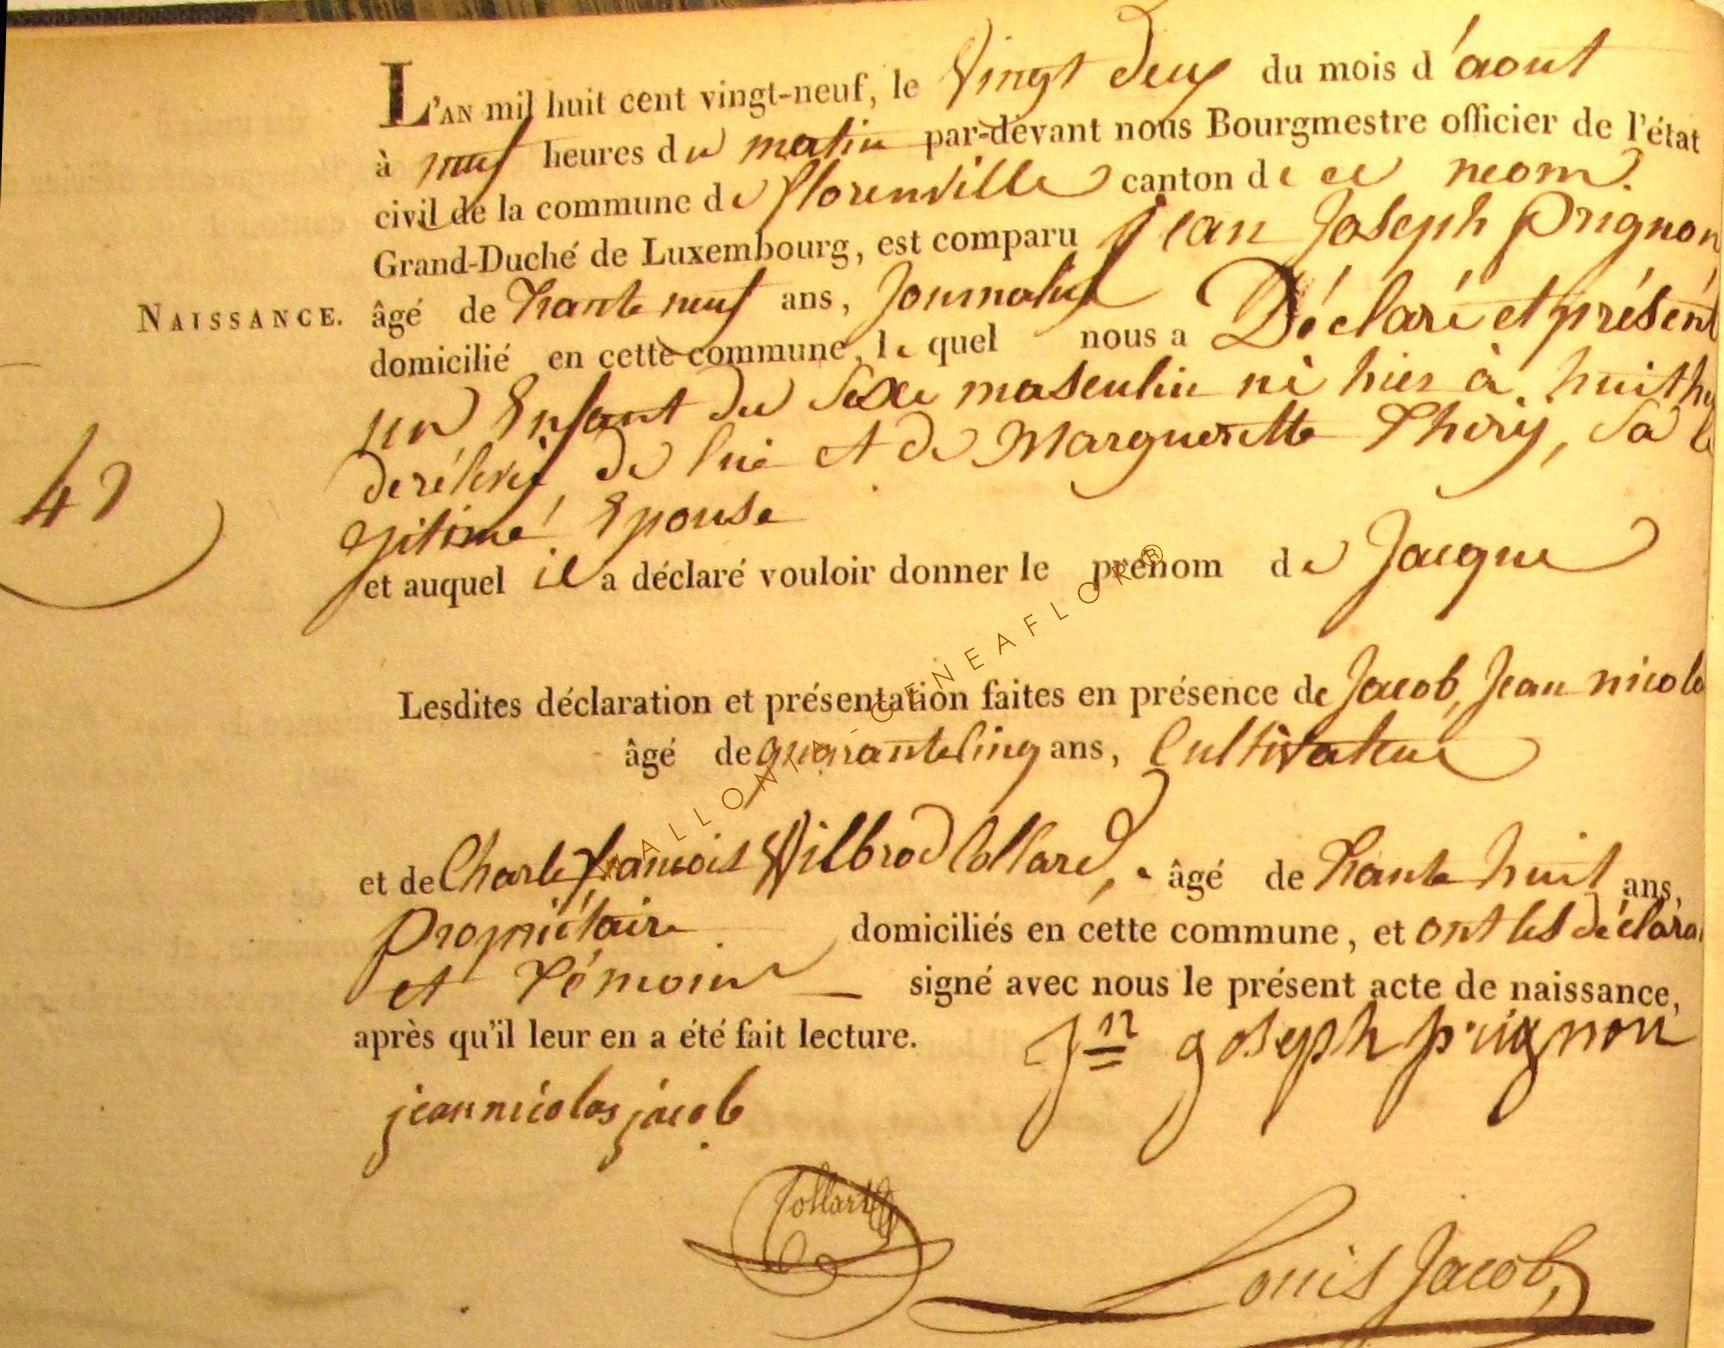 L'AN mil huit cent vingt-neuf, le Vingt deux du mois d'aout
à neuf heures du matin par-devant nous Bourgmestre officier de l'état
civil de la commune de florenville canton de ce nom.
Grand-Duché de Luxembourg, est comparu jean Joseph Prignon
NAISSANCE. âgé de trante neuf ans, Journalier
domicilié en cette commune, le quel nous a Déclaré et présent
un Enfant du Sexe masculin né hier à huit h
de rélevé, de lui et de Marguerette Thiry, Sa le
47
gitime Epouse
et auquel il a déclaré vouloir donner le prénom de Jacque
Lesdites déclaration et présentation faites en présence de Jacob, Jean nicola
âgé de quarante cinq ans, Cultivateur
et de Charle francois Wilbrod Collard, âgé de trante huit ans,
Propriétaire domiciliés en cette commune, et ont les déclara
et Témoins signé avec nous le présent acte de naissance,
après qu'il leur en a été fait lecture. Jn joseph prignon
jean nicolas jacob
Collard
Louis Jacob
WALLONIA - GENEAFLOR ®